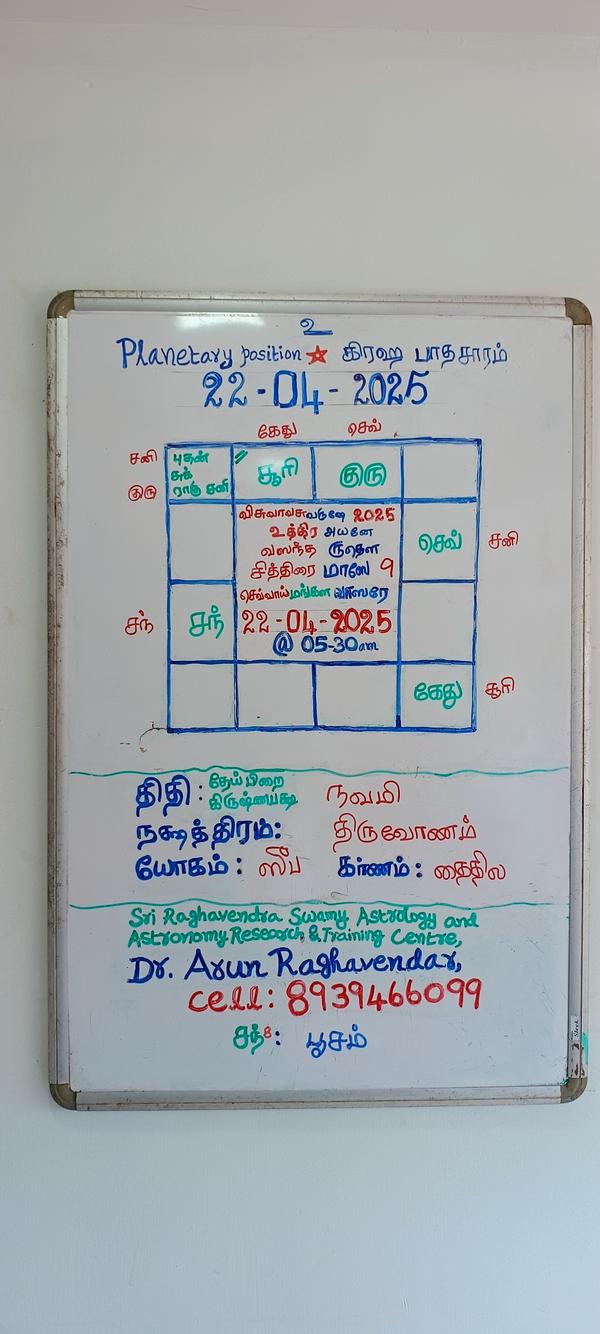 உ
Planetary position கிரஹ பாதசாரம்
22-04-2025
கேது செவ்
சனி
குரு
புதன்
சுக்
ராகு சனி
சூரி
குரு
விசுவாவசுவருஷே 2025
உத்திர அயனே
வஸந்த ருதௌ
சித்திரை மாஸே 9
செவ்வாய் மங்கள வாஸரே
22-04-2025
@ 05-30am
செவ்
சனி
சந்
சந்
கேது
சூரி
திதி: தேய்பிறை
கிருஷ்ணபக்ஷ நவமி
நக்ஷத்திரம்: திருவோணம்
யோகம்: ஸுப கர்ணம்: தைதில
Sri Raghavendra Swamy, Astrology and
Astronomy Research & Training Centre,
Dr. Arun Raghavendar,
cell: 8939466099
சந்8: பூசம்